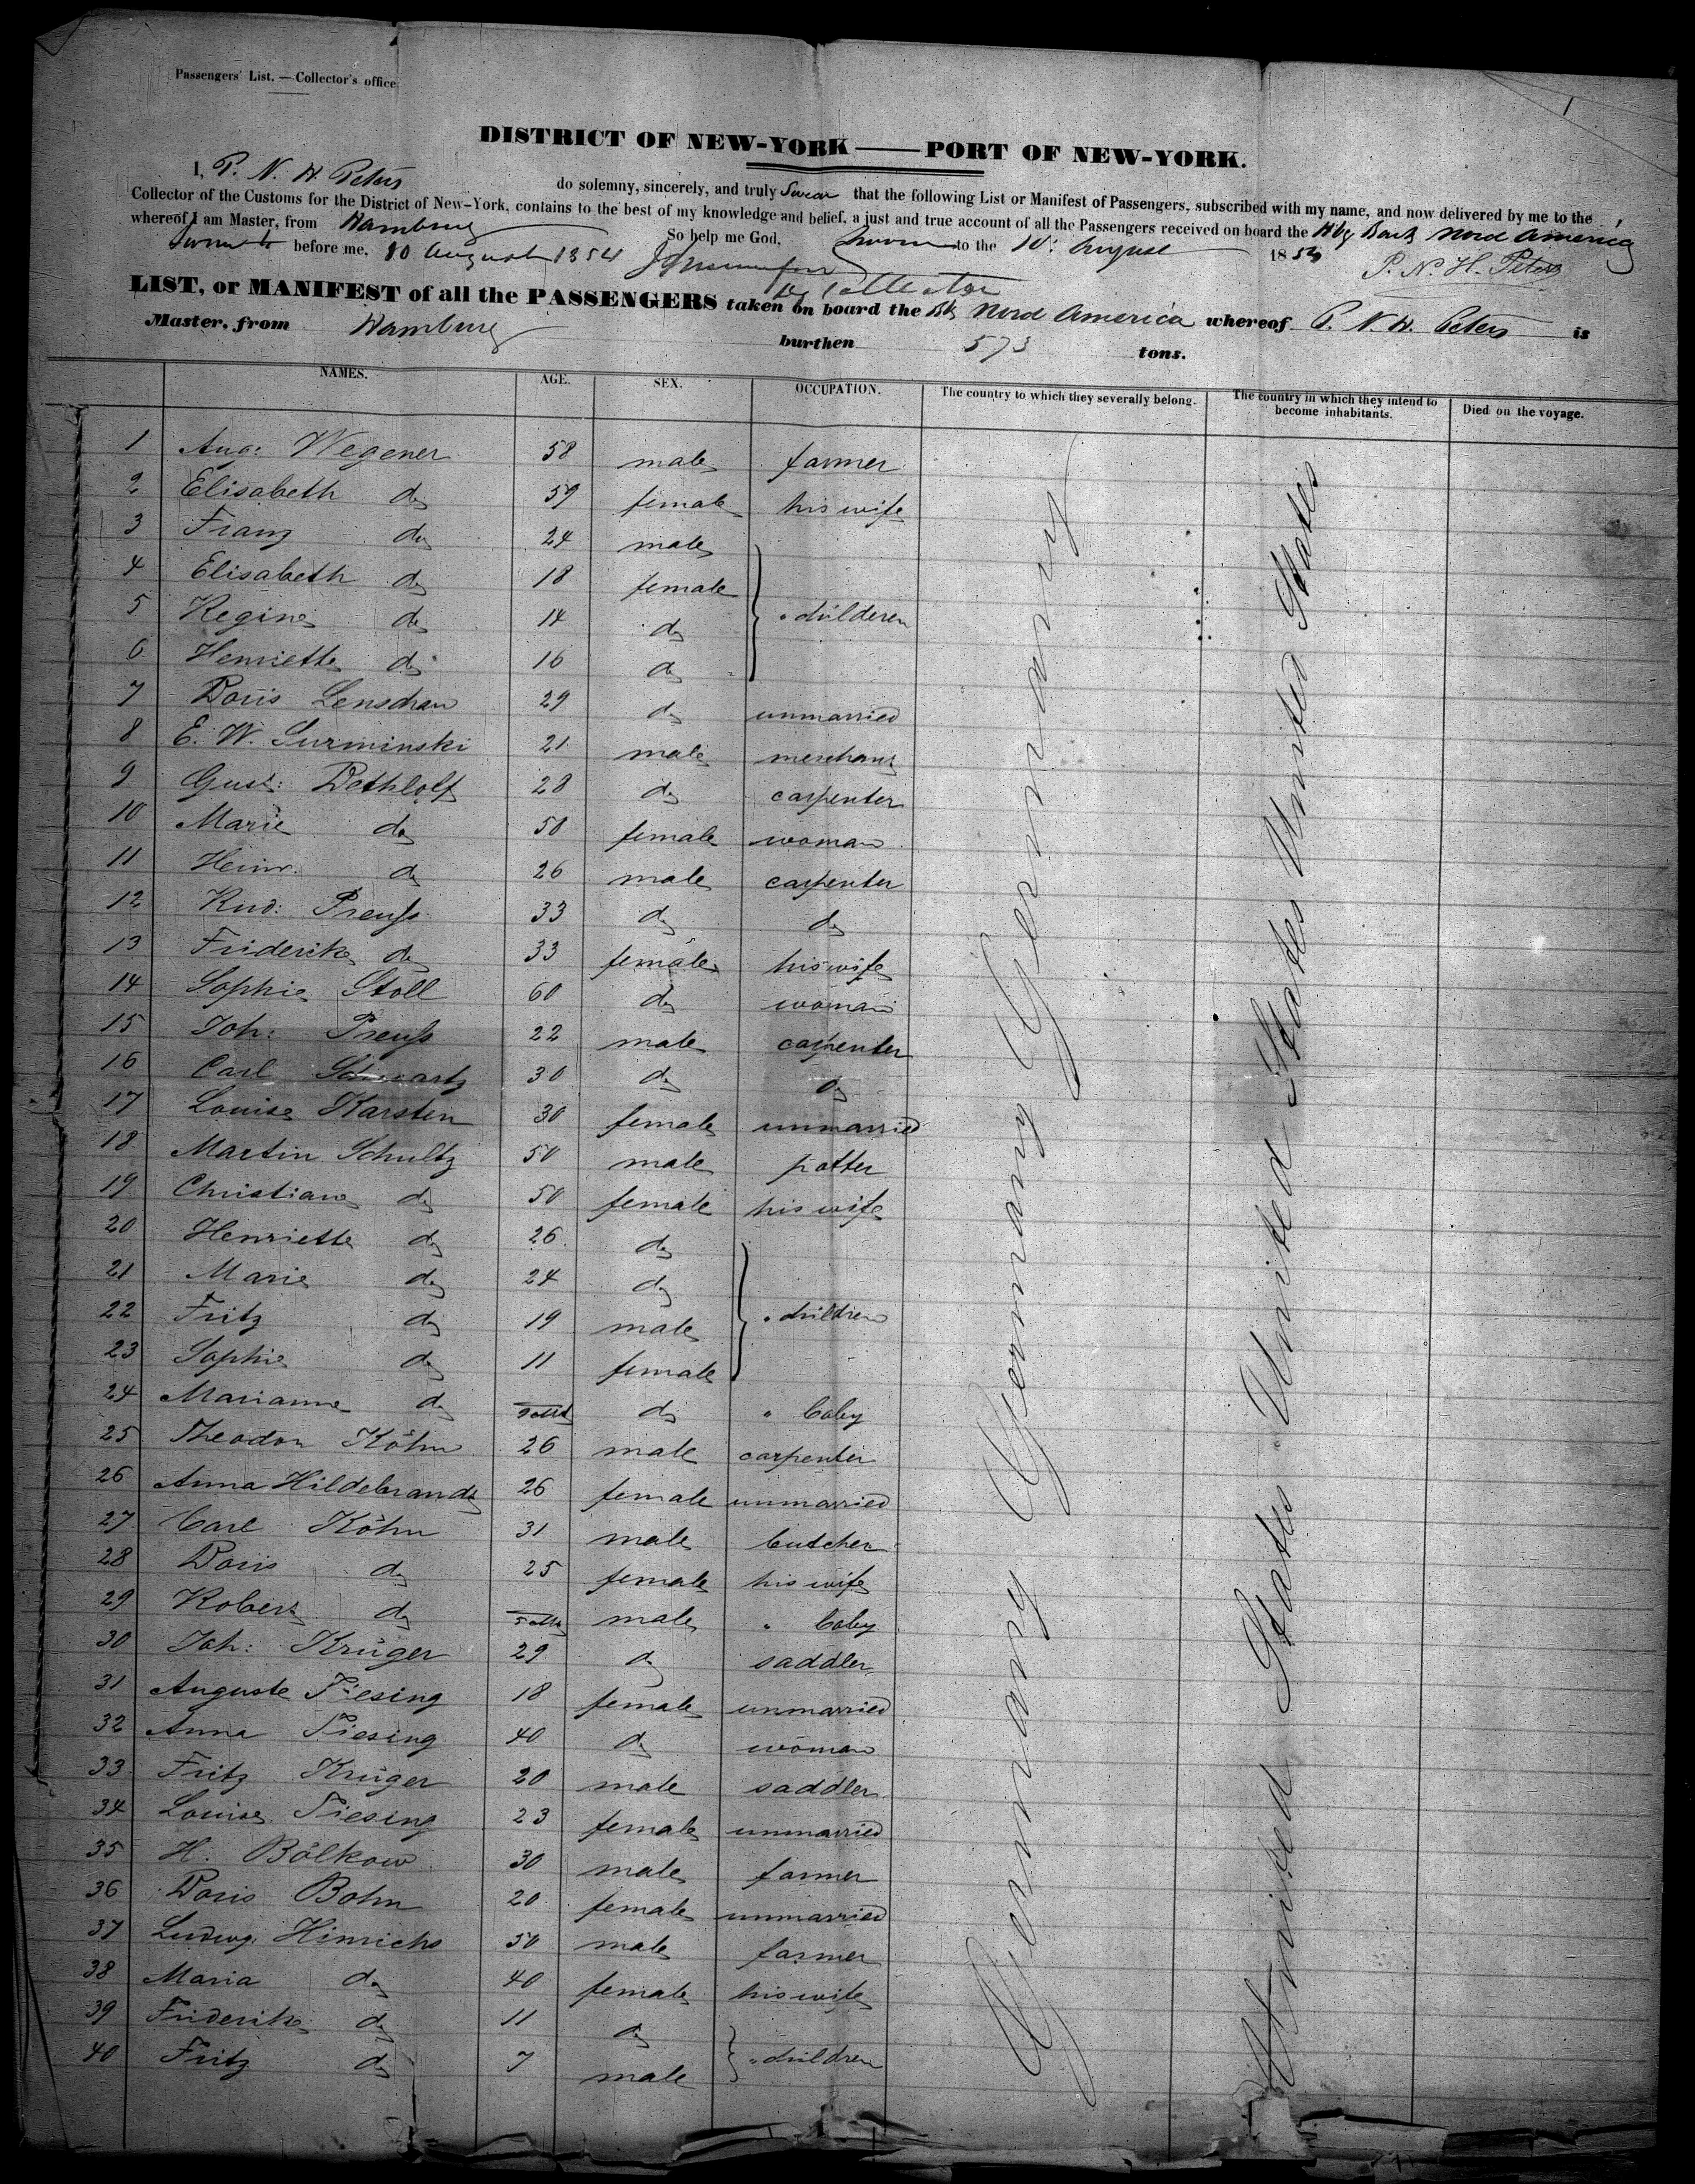 1
Passengers' List. — Collector's office.
DISTRICT OF NEW-YORK — PORT OF NEW-YORK.
I, P. N. H. Peters do solemny, sincerely, and truly Swear that the following List or Manifest of Passengers, subscribed with my name, and now delivered by me to the
Collector of the Customs for the District of New-York, contains to the best of my knowledge and belief, a just and true account of all the Passengers received on board the Hbg Bark Nord America
whereof I am Master, from Hamburg So help me God,
Sworn to before me, 10 August 1854 Sworn to the 10: August 1854 P. N. H. Peters
Collector
LIST, or MANIFEST of all the PASSENGERS taken on board the Bk Nord America whereof P. N. H. Peters is
Master, from Hamburg burthen 573 tons.
NAMES. AGE. SEX. OCCUPATION. The country to which they severally belong. The country in which they intend to become inhabitants. Died on the voyage.
1 Aug: Wegener 58 male farmer
2 Elisabeth do 59 female his wife
3 Franz do 24 male
4 Elisabeth do 18 female
5 Regine do 14 do " childeren
6 Henriette do 16 do
7 Doris Lenschau 29 do unmarried
8 E. W. Surminski 21 male merchant
9 Gust: Dethloff 28 do carpenter
10 Marie do 50 female woman
11 Heinr. do 26 male carpenter
12 Rud: Preuß 33 do do
13 Friderike do 33 female his wife
14 Sophie Stoll 60 do woman
15 Joh: Preuß 22 male carpenter
16 Carl Schwartz 30 do do
17 Louise Karsten 30 female unmarried
18 Martin Schultz 50 male potter
19 Christiane do 50 female his wife
20 Henriette do 26 do
21 Marie do 24 do
22 Fritz do 19 male " children
23 Sophie do 11 female
24 Marianne do do " baby
25 Theodor Köhn 26 male carpenter
26 Anna Hildebrandt 26 female unmarried
27 Carl Köhn 31 male butcher
28 Doris do 25 female his wife
29 Robert do male " baby
30 Joh: Krüger 29 do saddler
31 Auguste Tiesing 18 female unmarried
32 Anna Tiesing 40 do woman
33 Fritz Krüger 20 male saddler
34 Louise Tiesing 23 female unmarried
35 H. Bölkow 30 male farmer
36 Doris Bohn 20 female unmarried
37 Ludwg. Hinrichs 50 male farmer
38 Maria do 40 female his wife
39 Friderike do 11 do
40 Fritz do 7 male " children
Germany Germany Germany
United States United States United States